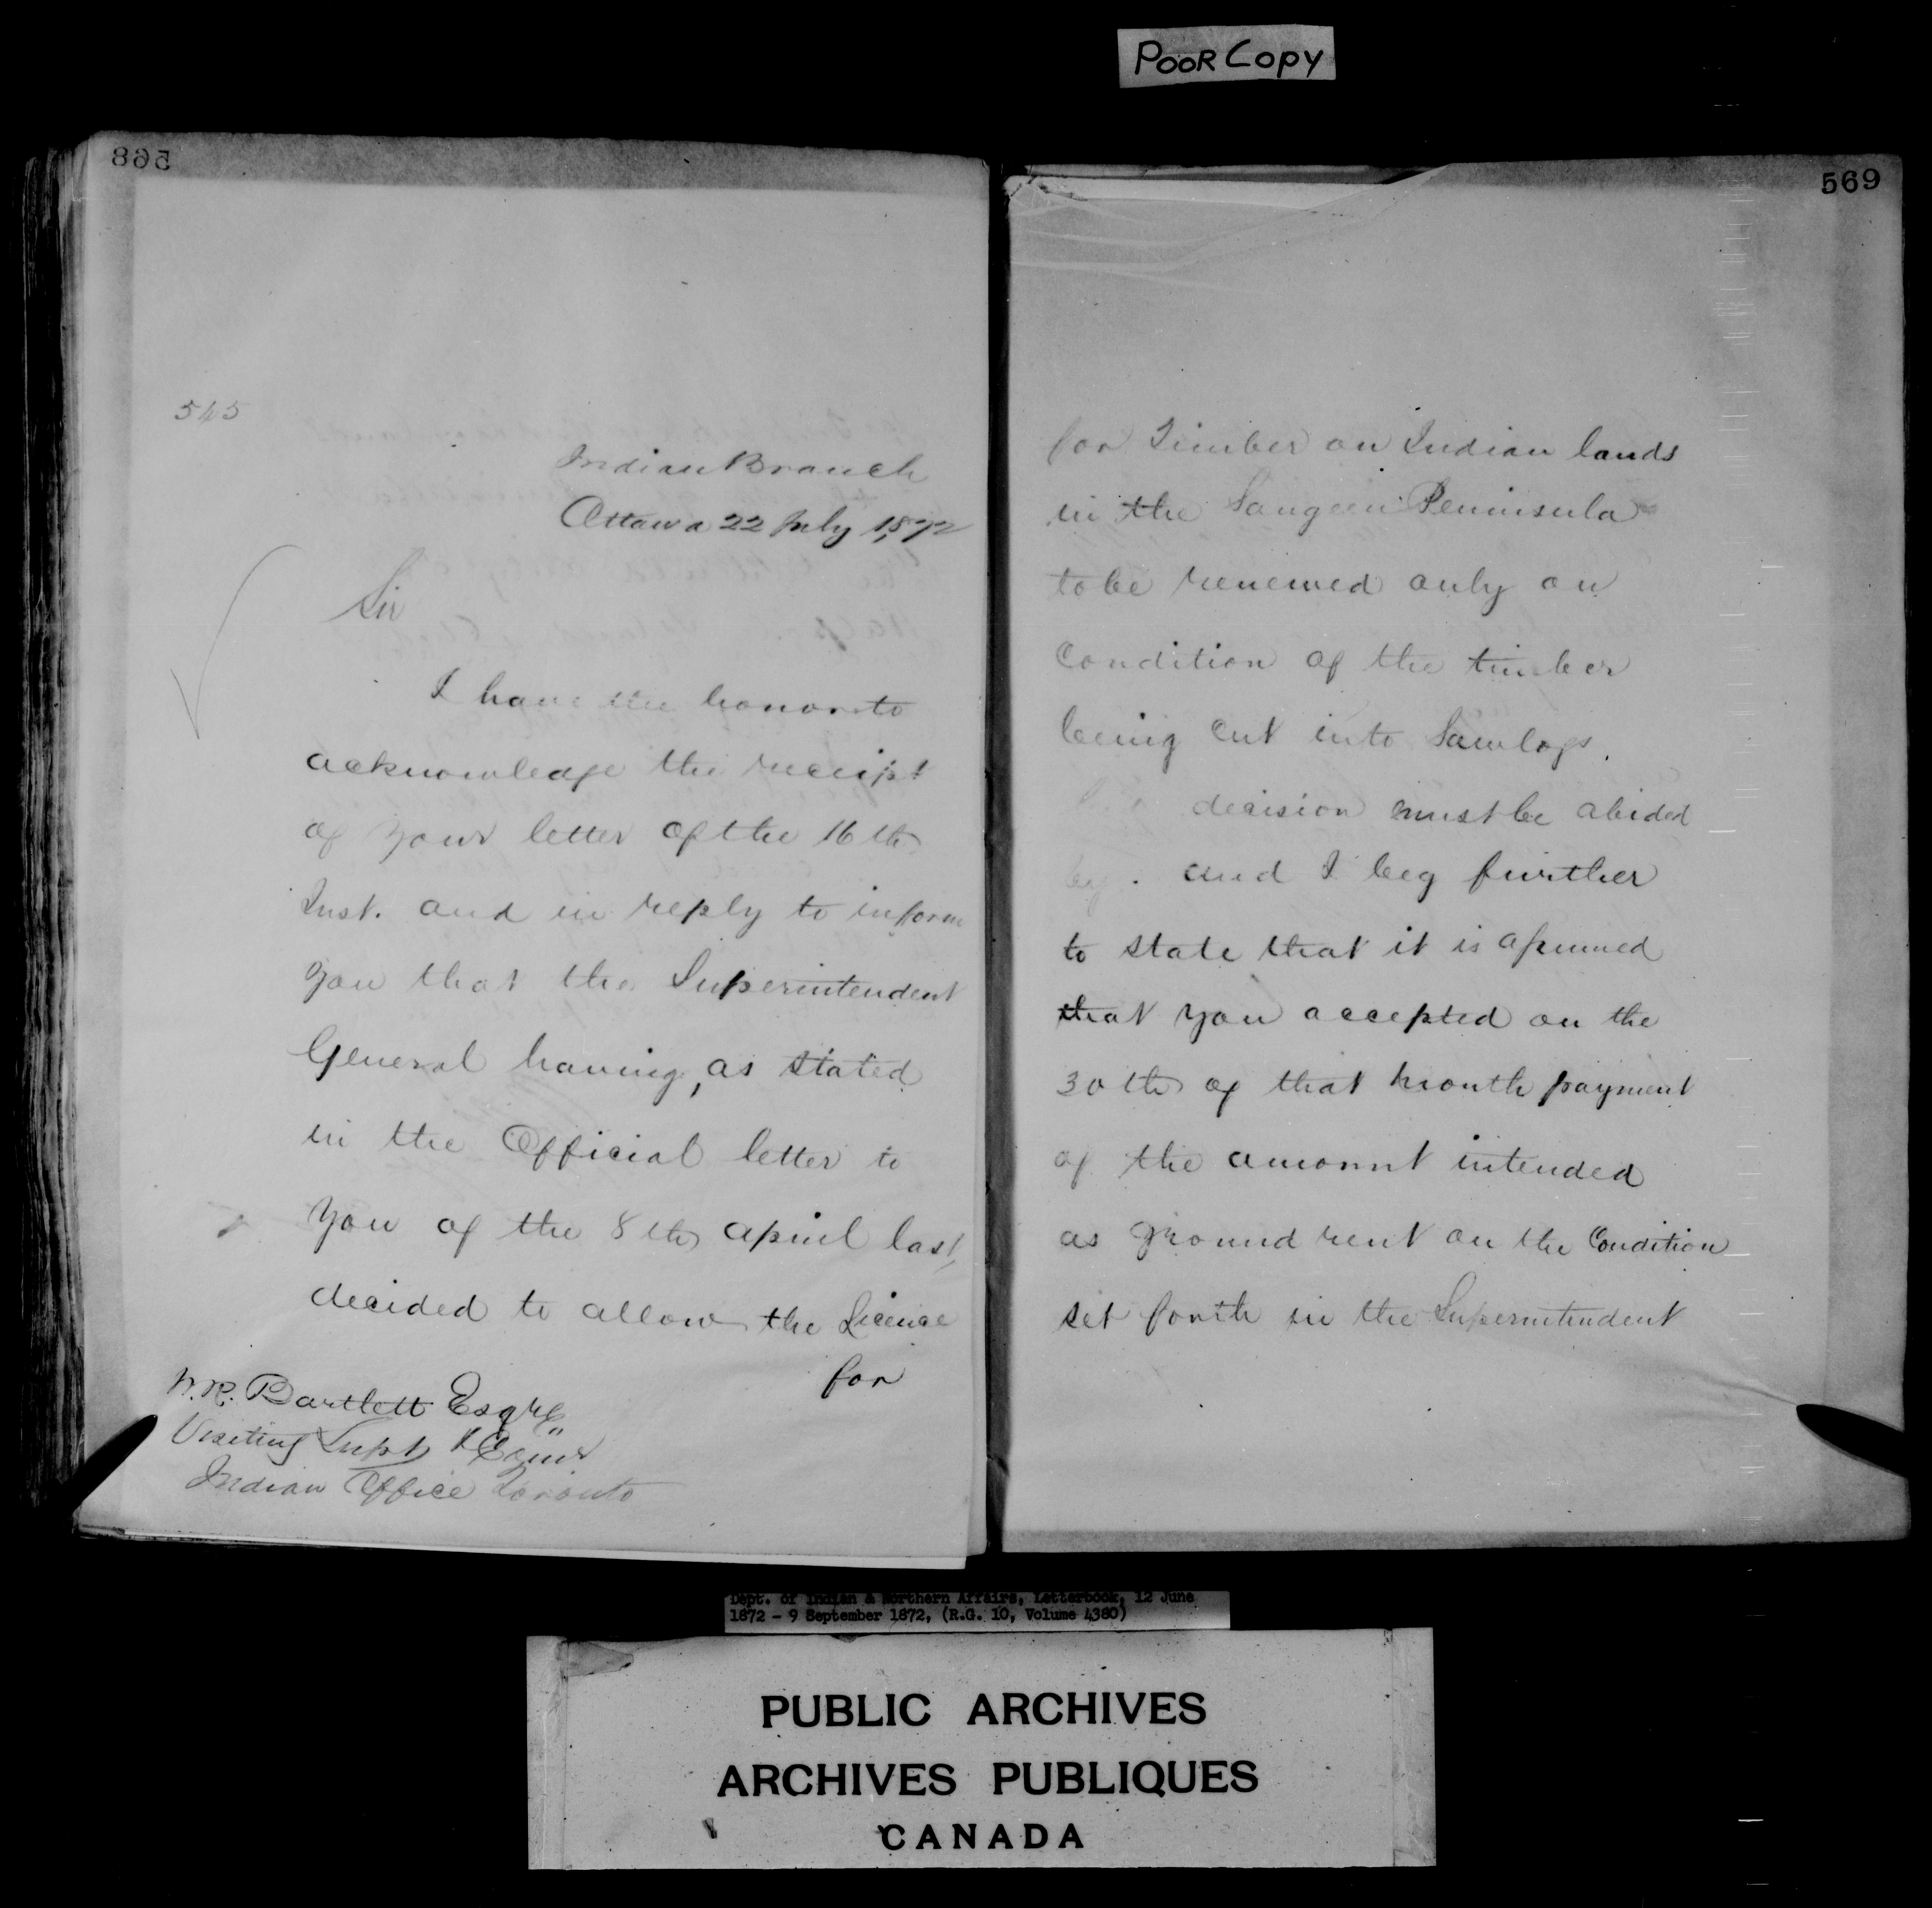 POOR Copy
568
545
Indian Branch
Ottawa 22 July 1872
Sir
I have the honor to
acknowledge the receipt
of your letter of the 16th
Inst. and in reply to inform
you that the Superintendent
General having, as stated
in the Official letter to
you of the 8th april last,
decided to allow the Licence
for
W.R. Bartlett Esqre
Visiting Supt & Comr
Indian Office Toronto
569
for Timber on Indian lands
in the Saugeen Peninsula
to be renewed only on
Condition of the timber
being cut into Sawlogs.
decision must be abided
by. and I beg further
to state that it is assumed
that you accepted on the
30th of that month payment
of the amount intended
as ground rent on the Condition
set forth in the Superintendent
Dept. of Indian & Northern Affairs, Letterbook, 12 June
1872 - 9 September 1872, (R.G. 10, Volume 4380)
PUBLIC ARCHIVES
ARCHIVES PUBLIQUES
CANADA